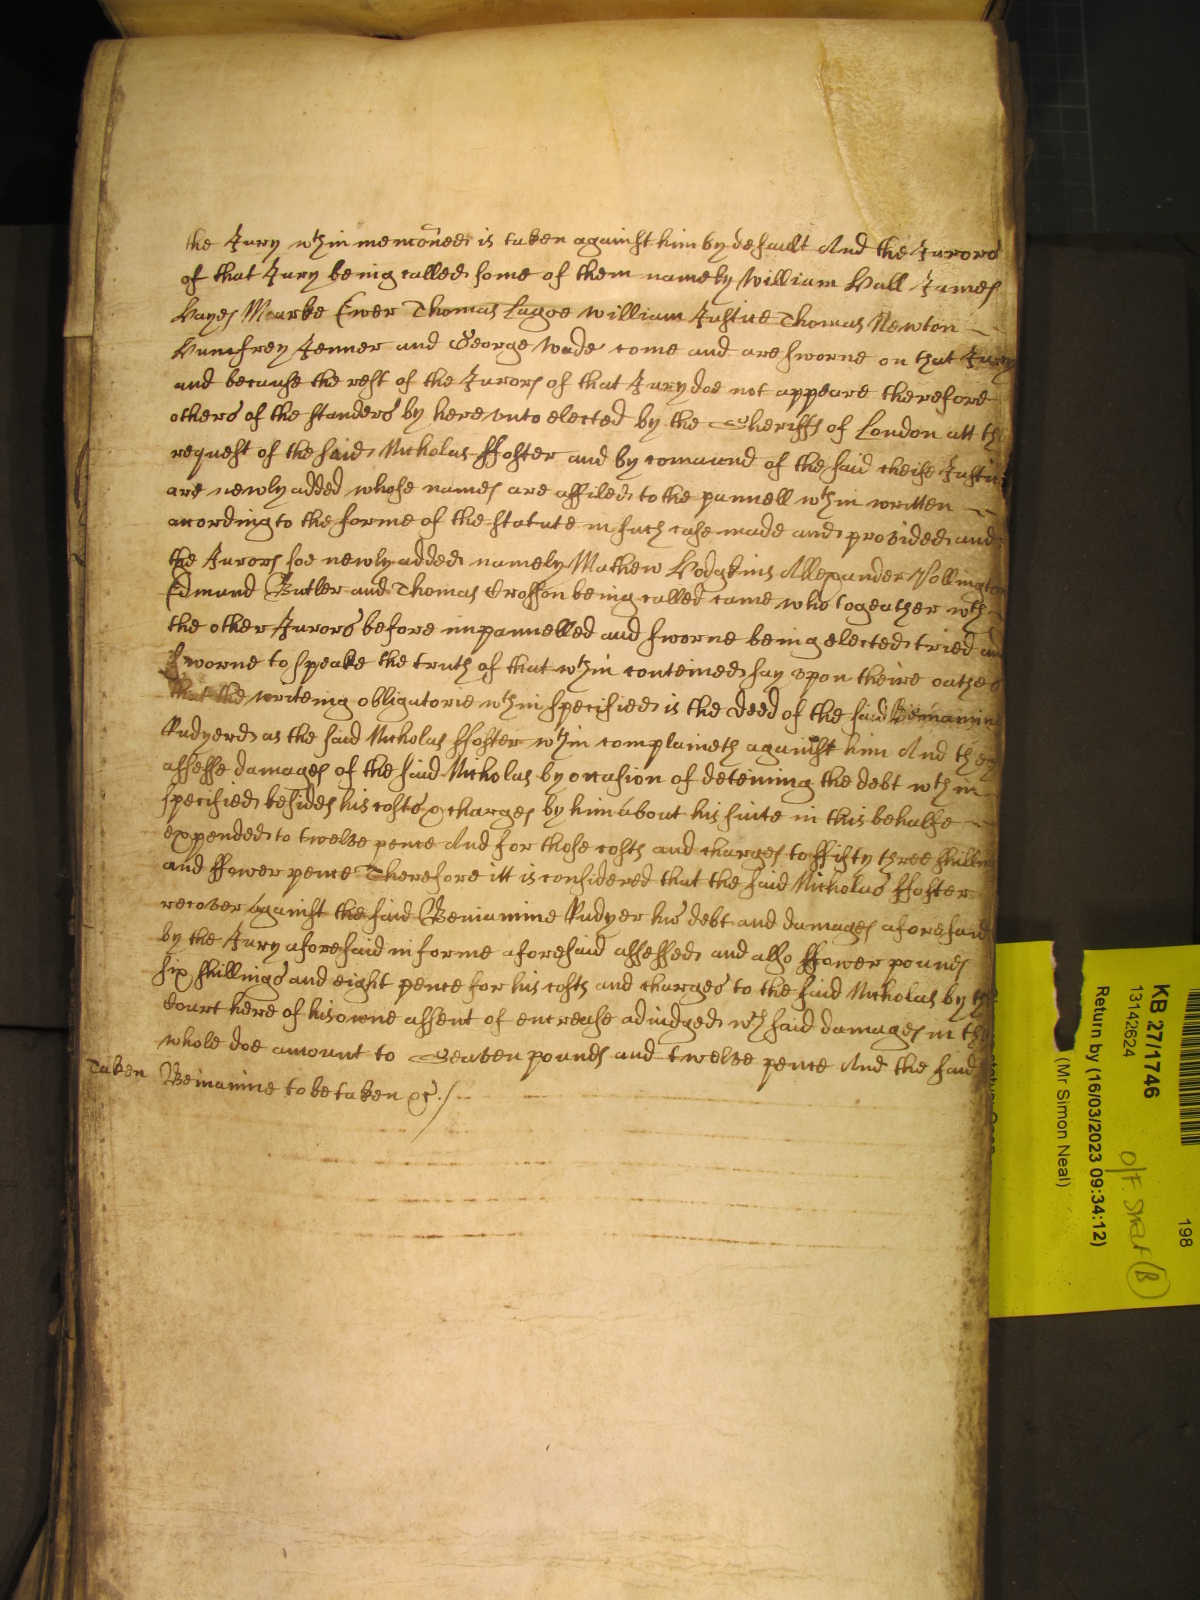 the Jury wthin menconed is taken against him by default And the Jurors
of that Jury being called some of them namely William Hall James
Hayes Marke Ewer Thomas Lagoe William Justice Thomas Newton
Humfrey Jenner and George Wade come and are sworne on that Jury
and because the rest of the Jurors of that Jury doe not appeare therefore
others of the standers by herevnto elected by the Sheriffs of London att the
request of the said Nicholas ffoster and by comaund of the said cheife Justice
are newly added whose names are affiled to the pannell wthin written
according to the forme of the statute in such case made and provided and
the Jurors soe newly added namely Mathew Hodgkins Allexander Pollington
Edmund Butler and Thomas Crosson being called came who togeather wth
the other Jurors before impannelled and sworne being elected tried and
sworne to speake the truth of that wthin conteined say vpon theire oathes
that the writeing obligatorie wthin specified is the deed of the said Beniamine
Rudyerd as the said Nicholas ffoster wthin complaineth against him And they
assesse damages of the said Nicholas by occasion of deteining the debt wthin
specified besides his costs & charges by him about his suite in this behalfe
expended to twelve pence And for those costs and charges to ffifty three shillings
and ffower pence Therefore itt is considered that the said Nicholas ffoster
recover against the said Beniamine Rudyer his debt and damages aforesaid
by the Jury aforesaid in forme aforesaid assessed and also ffower pounds
six shillings and eight pence for his costs and charges to the said Nicholas by the
Court here of his owne assent of encrease adiudged wch said damages in the
whole doe amount to Seaven pounds and twelve pence And the said
Taken Beniamine to be taken &c./
KB 27/1746
13142624
Return by (16/03/2023 09:34:12)
(Mr Simon Neal)
198